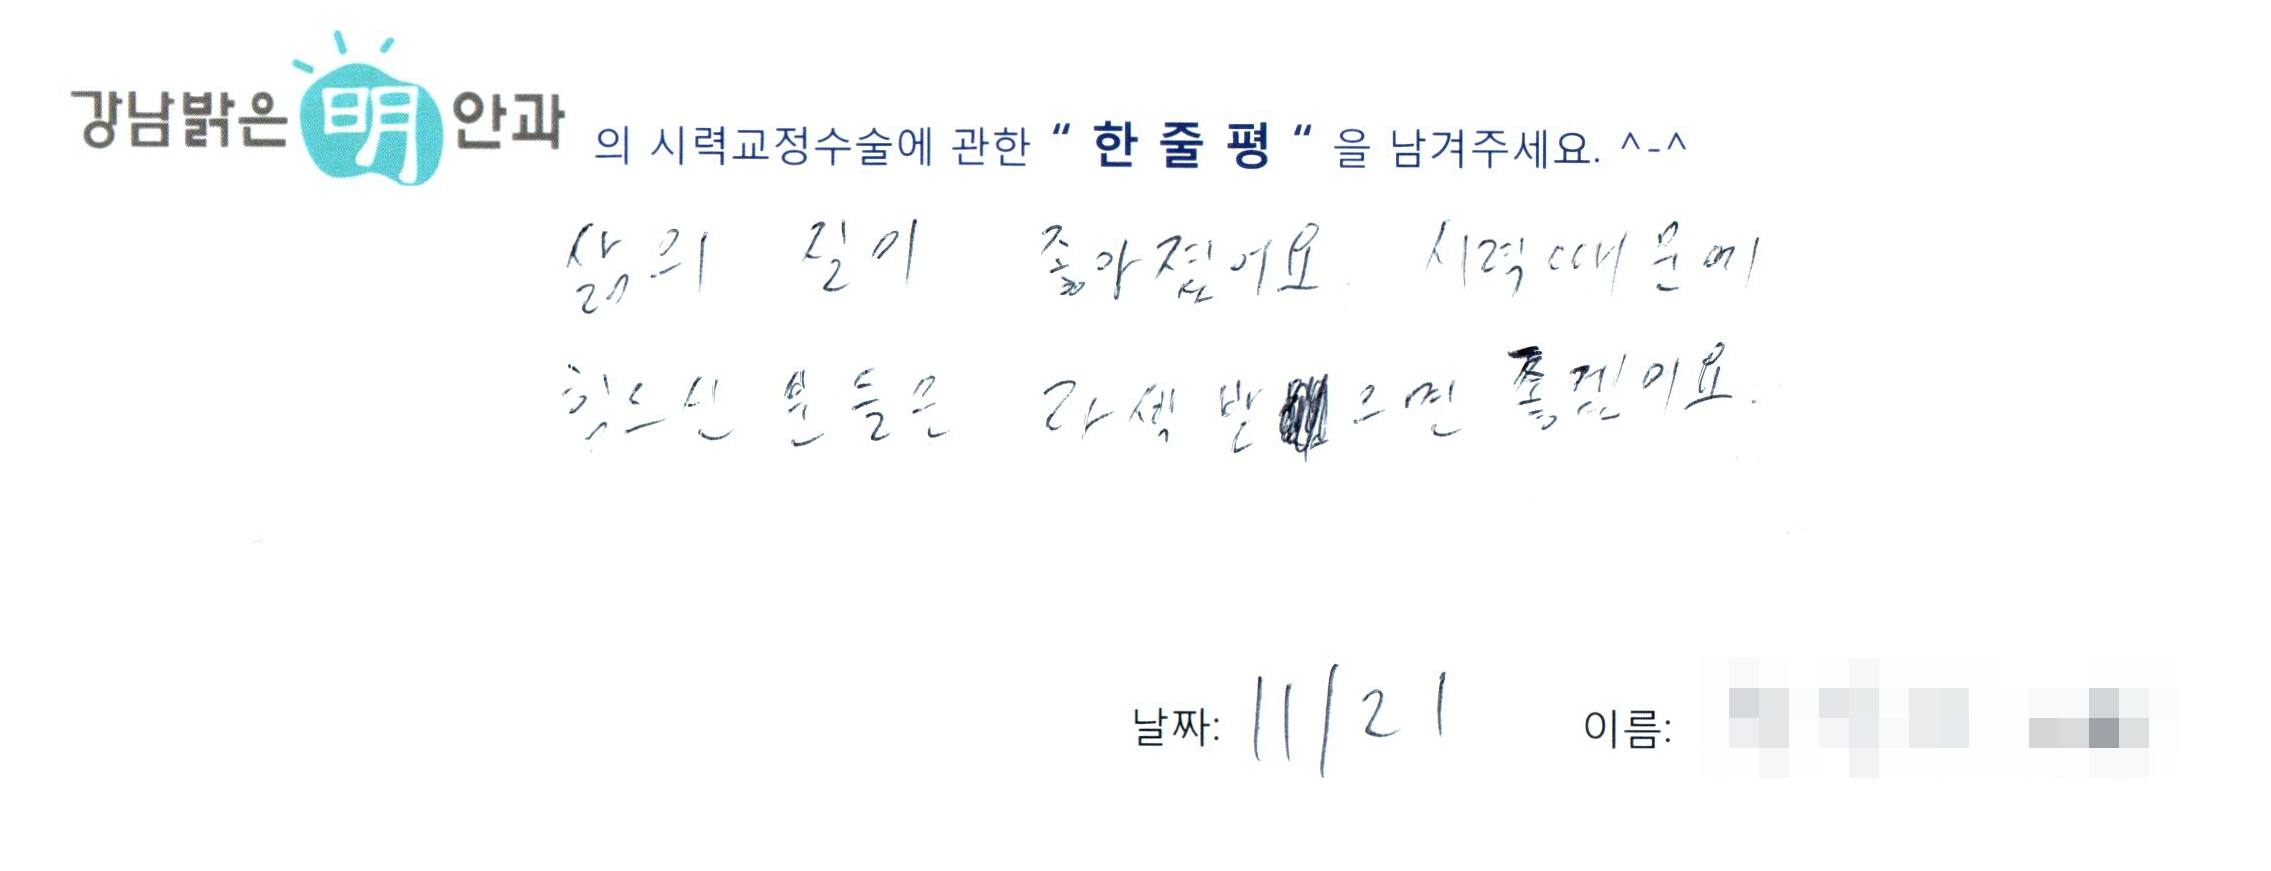 강남밝은明안과 의 시력교정수술에 관한 “ 한 줄 평 “ 을 남겨주세요. ^-^
삶의 질이 좋아졌어요. 시력때문에
힘드신 분들은 라섹 받으면 좋겠어요.
날짜: 11/21 이름: